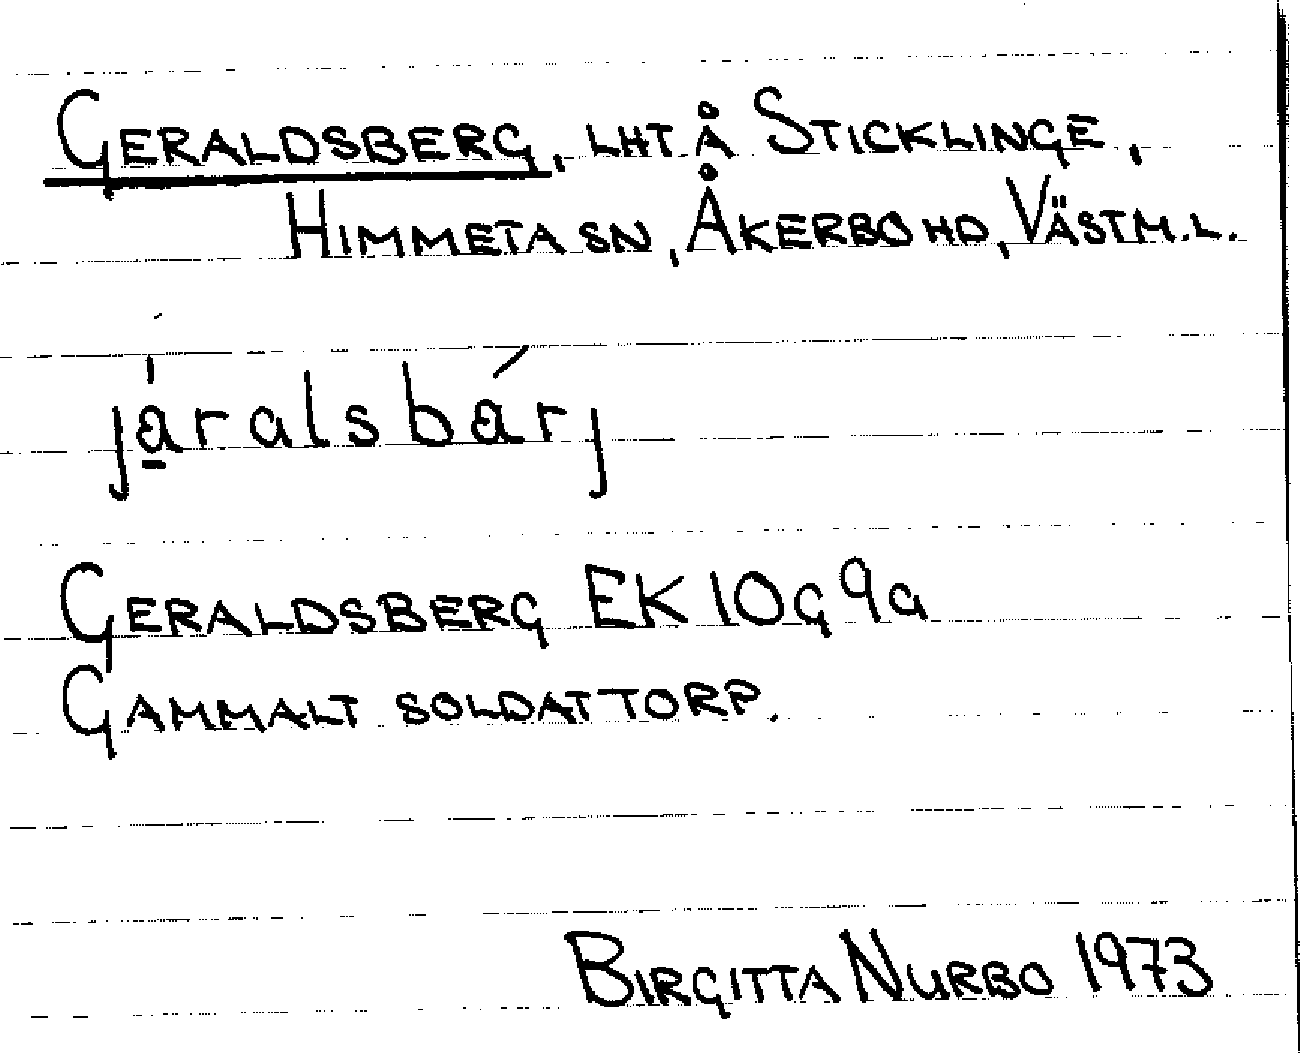 GERALDSBERG, LHT Å STICKLINGE,
HIMMETA SN, ÅKERBO HD, VÄSTM.L.
järalsbärj
GERALDSBERG EK 10G 9a
GAMMALT SOLDATTORP.
BIRGITTA NURBO 1973